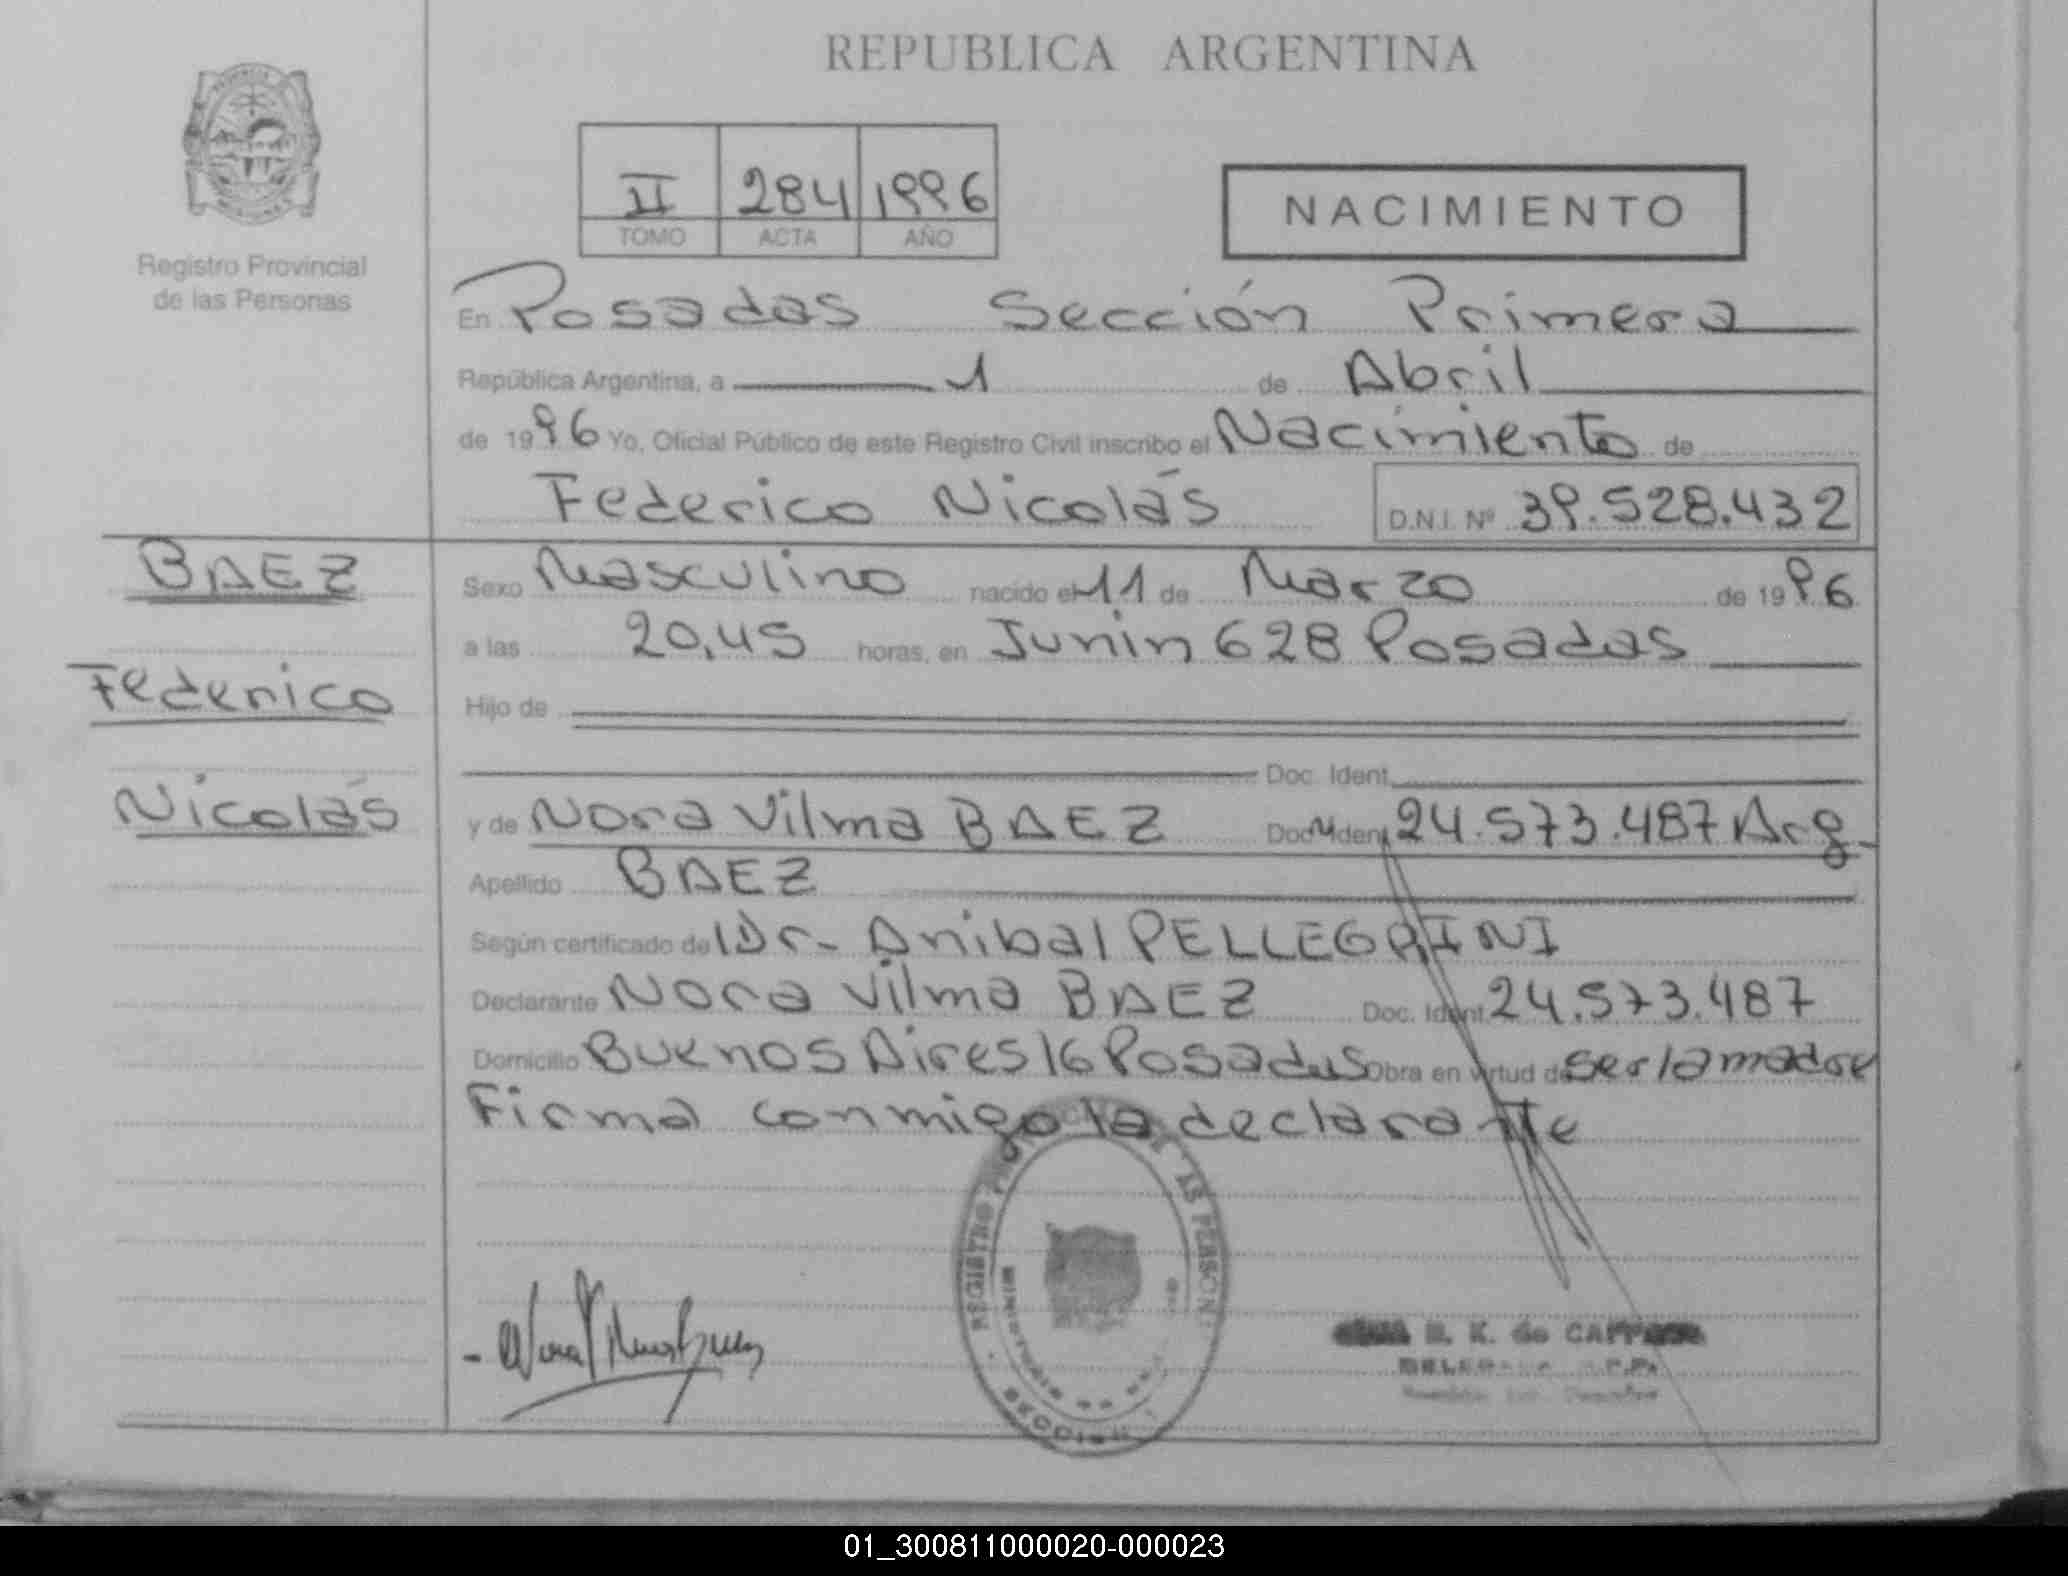 REPUBLICA ARGENTINA
II 284 1996
TOMO ACTA AÑO
NACIMIENTO
Registro Provincial
de las Personas
En Posadas Sección Primera
República Argentina, a 1 de Abril
de 1996 Yo, Oficial Público de este Registro Civil inscribo el Nacimiento de
Federico Nicolás D.N.I. Nº 39.528.432
BAEZ
Federico
Nicolás
Sexo Masculino nacido el 11 de Marzo de 1996
a las 20,45 horas, en Junin 628 Posadas
Hijo de
Doc. Ident.
y de Nora Vilma BAEZ Doc. Ident. 24.573.487 Arg.
Apellido BAEZ
Según certificado de Dr. Anibal PELLEGRINI
Declarante Nora Vilma BAEZ Doc. Ident. 24.573.487
Domicilio Buenos Aires 16 Posadas Obra en virtud de ser la madre
Firma conmigo la declarante
REGISTRO AS PERSON
SECCION
K. de
01_300811000020-000023